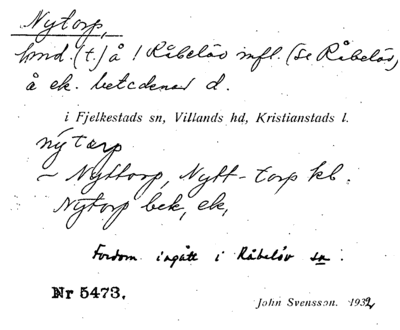 Nytorp,
hmd. (t.) å 1 Råbelöv mfl. (se Råbelöv)
å ek. betcdenas d.
i Fjelkestads sn, Villands hd, Kristianstads l.
nýtærp
~ Nyttorp, Nytt-torp kb.
Nytorp bek, ek,
Fordom ingått i Råbelöv sn.
Nr 5473.
John Svensson. 1932